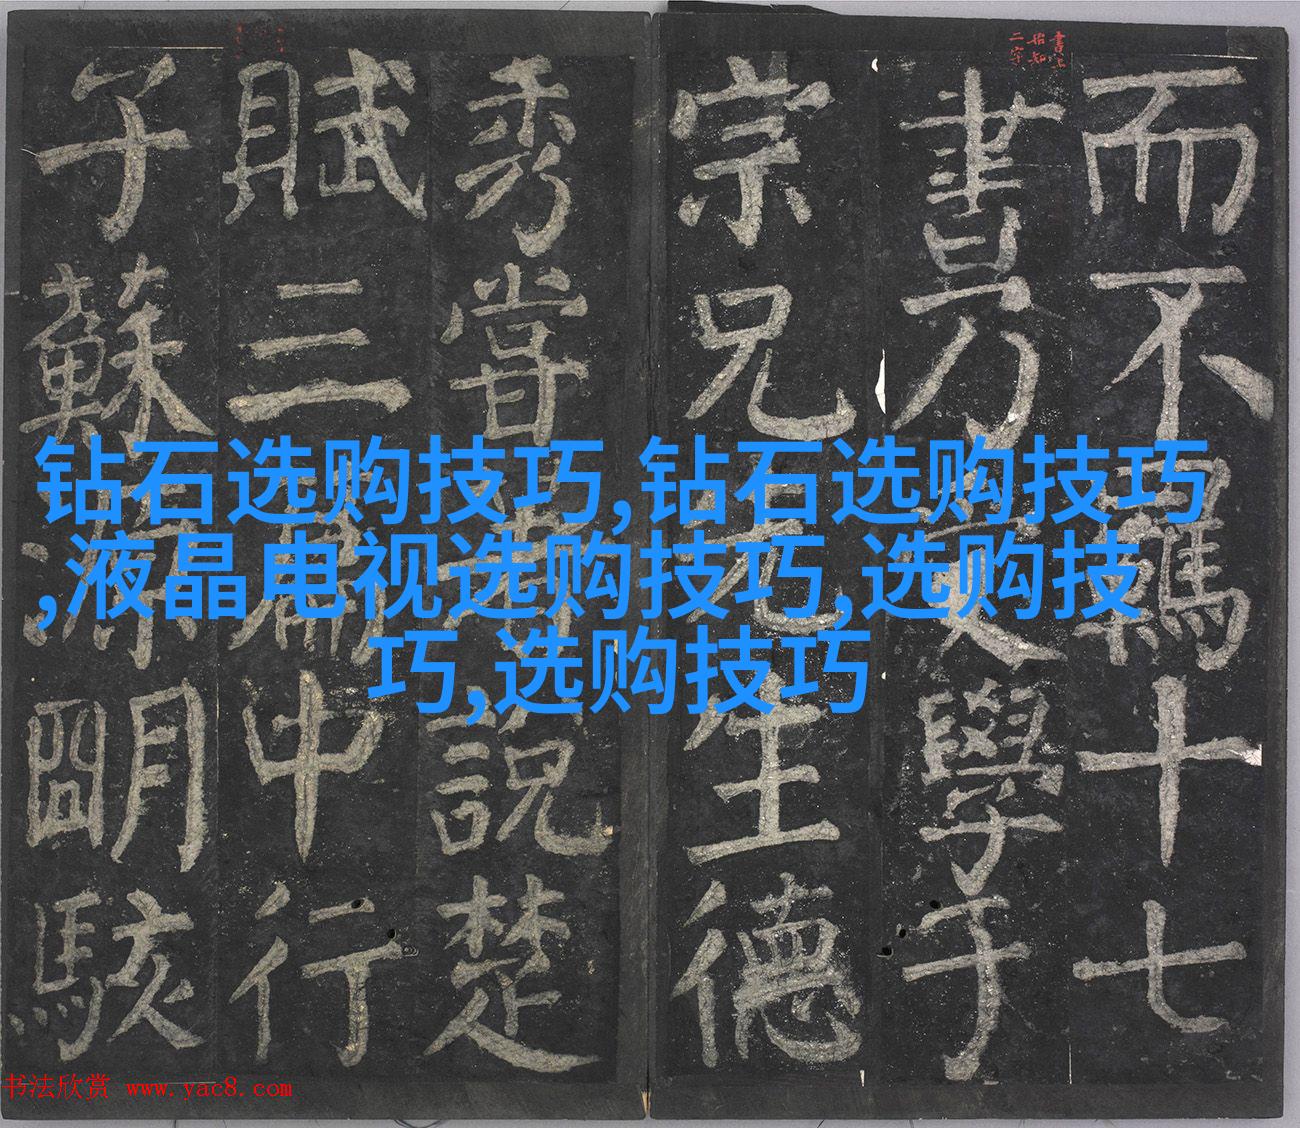 而不羈十七
書乃學于
宗兄先生德
秀嘗說楚
賦三篇中行
子蘇明駭
書上
二字
钻石选购技巧,钻石选购技巧
,液晶电视选购技巧,选购技
巧,选购技巧
书法欣赏 www.yac8.com